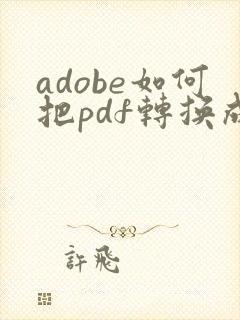 adobe如何
把pdf轉換成
許飛